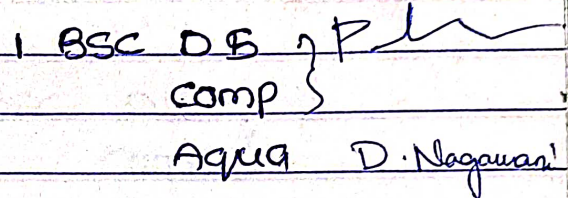 1 BSC DS }
comp }
Aqua D. Nagavani